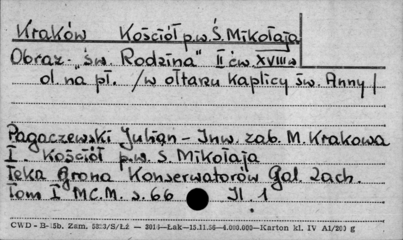 Kraków Kościół p.w. Ś. Mikołaja
Obraz - "św. Rodzina" II ćw. XVIII w
ol. na pł. /w ołtarzu kaplicy św. Anny/
Pagaczewski Julian - Inw. zab. M. Krakowa
I. Kościół p.w. S. Mikołaja
Teka Grona Konserwatorów Gal. Zach.
tom I MCM. s. 66 Il. 1
CWD - B- Zam. /S/Łź — Łak—13.11.56—4.000.000—Karton kl. IV A1/200 g